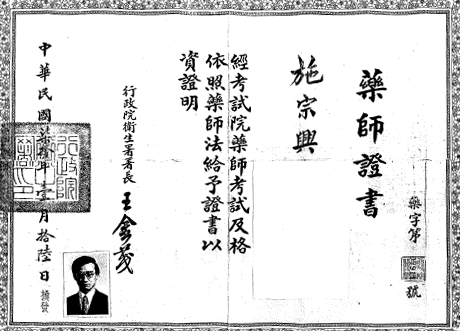 藥師證書
藥字第 號
施宗興
經考試院藥師考試及格
依照藥師法給予證書以
資證明
行政院衛生署署長 王金茂
中華民國 年壹月拾陸日
換發